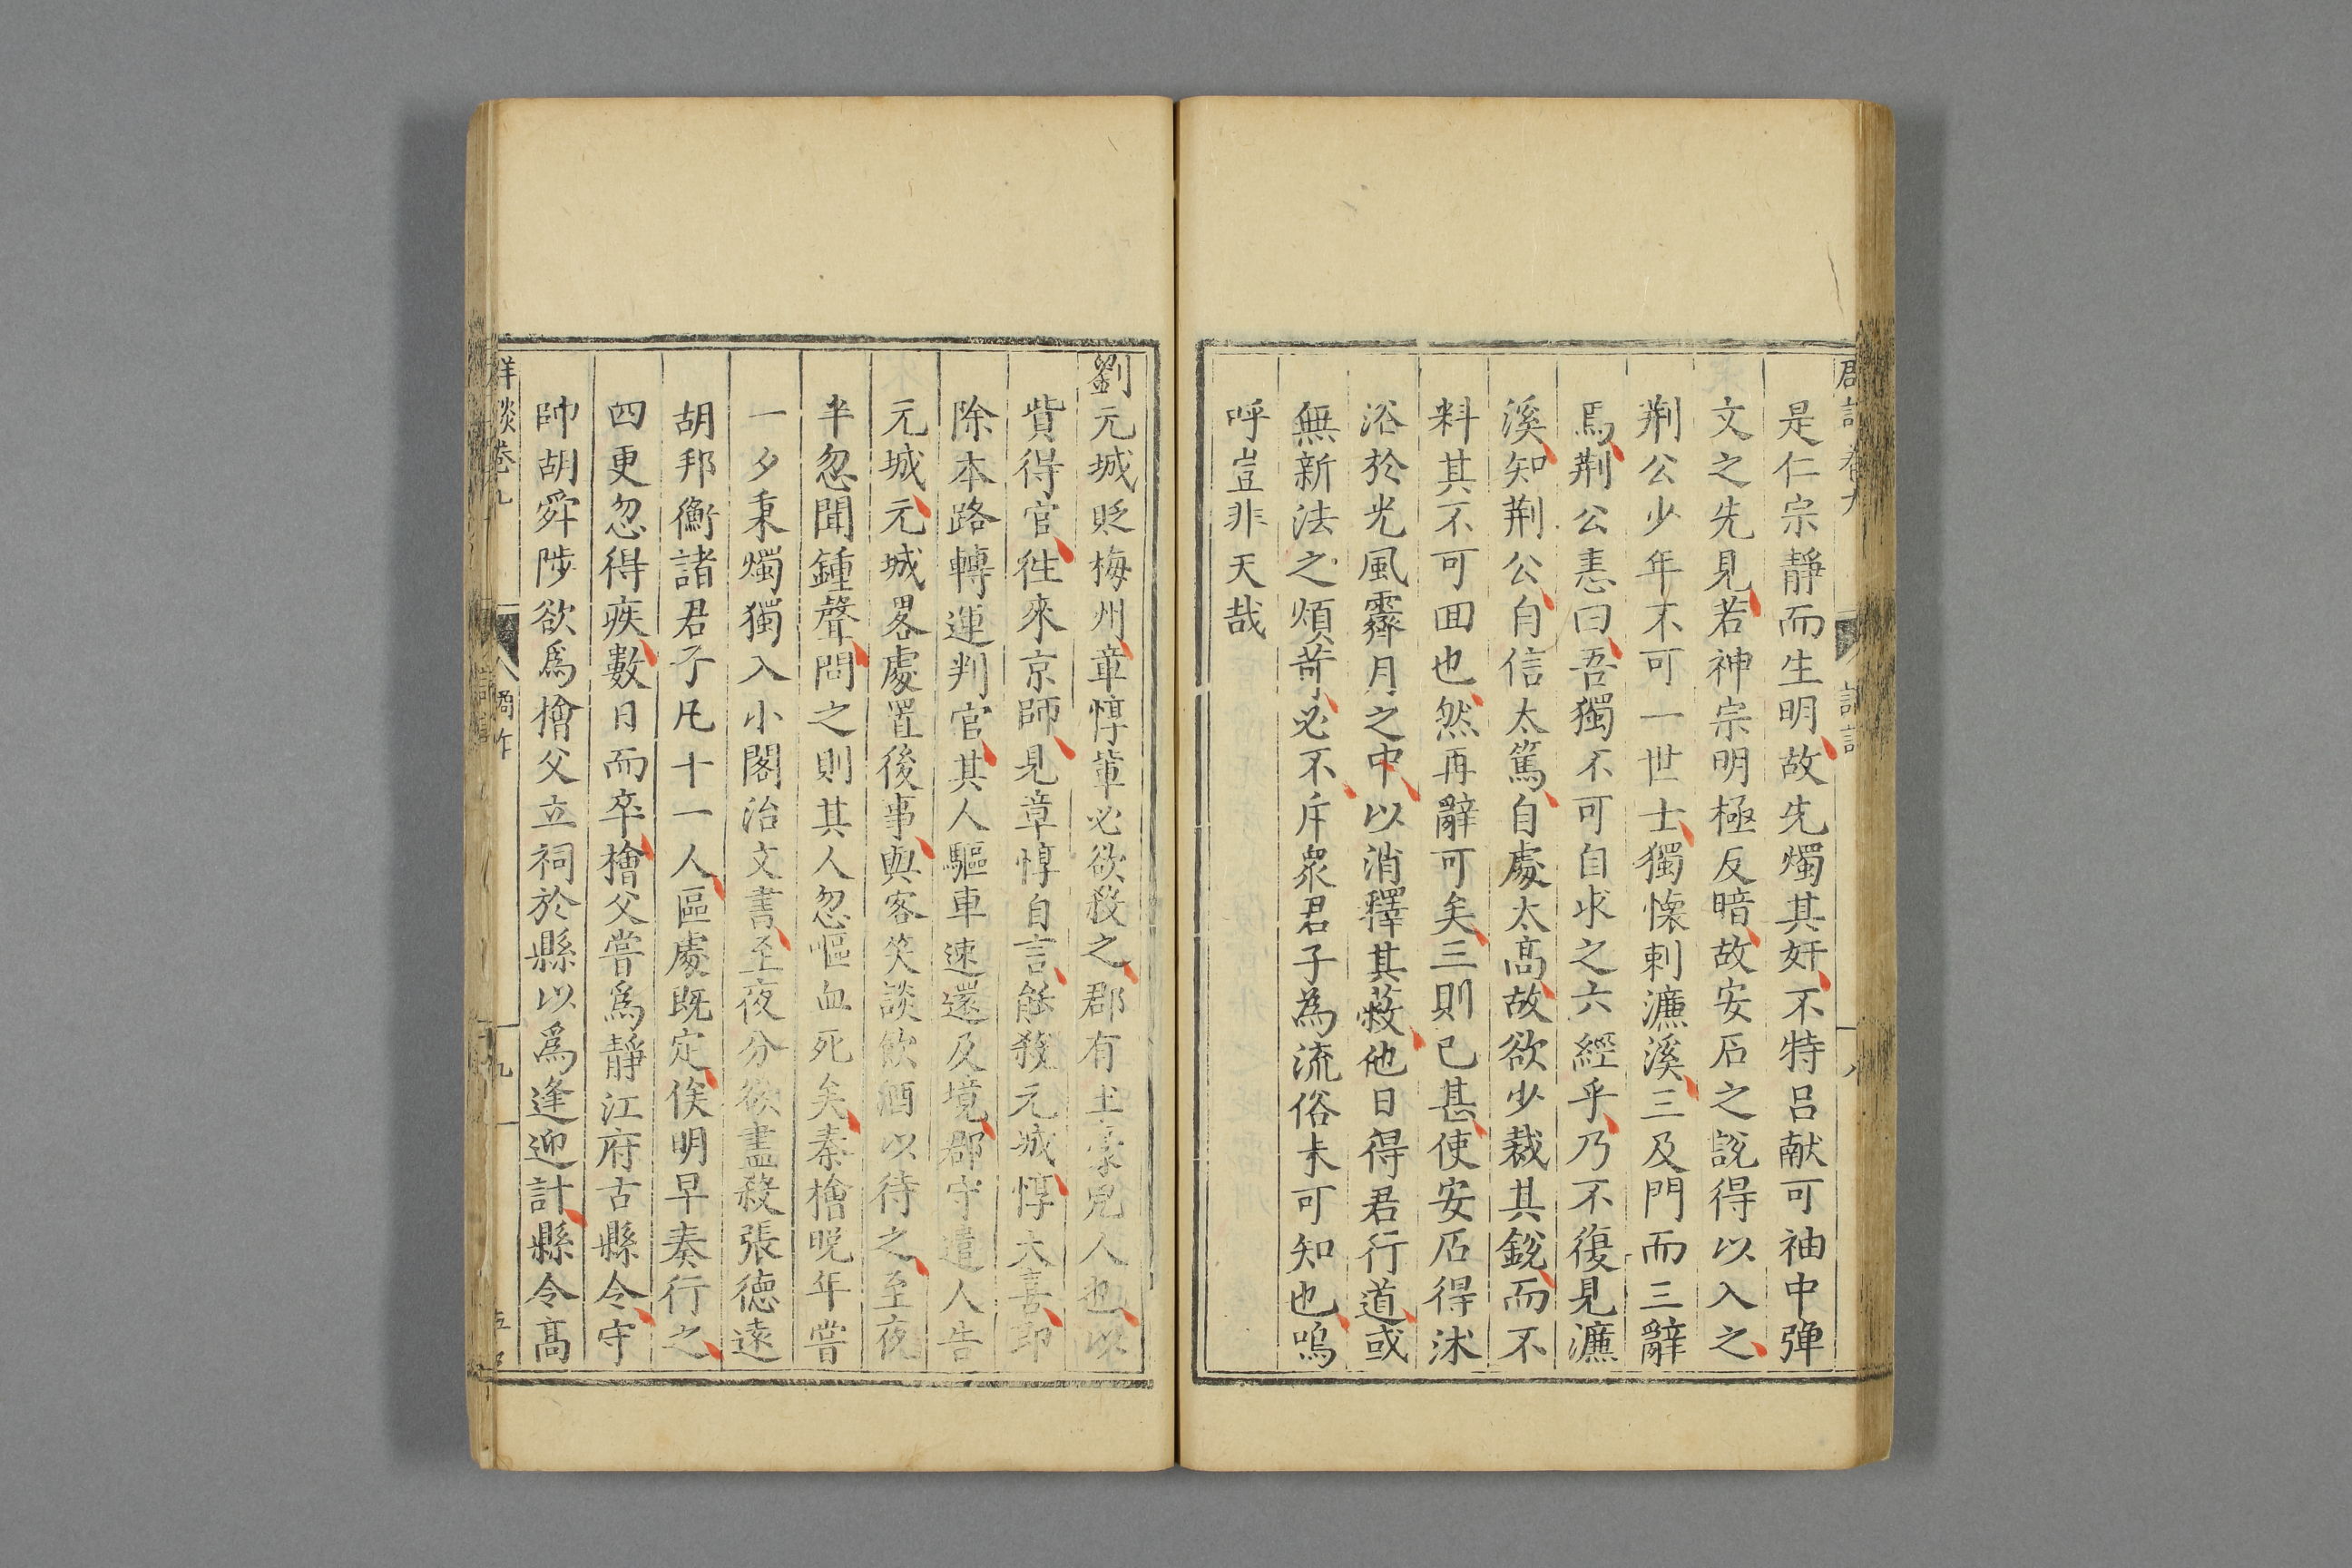 是仁宗靜而生明故先燭其奸不特呂献可袖中弹
文之先見若神宗明極反暗故安石之說得以入之
荆公少年不可一世士獨懷刺濂溪三及門而三辭
焉荆公恚曰吾獨不可自求之六經乎乃不復見濂
溪知荆公自信太篤自處太高故欲少裁其銳而不
料其不可囬也然再辭可矣三則已甚使安石得沭
浴於光風霽月之中以消釋其蔽他日得君行道或
無新法之煩苛必不斥衆君子為流俗未可知也嗚
呼豈非天哉
劉元城貶梅州章惇軰必欲殺之郡有土豪兇人也以
貲得官徃來京師見章惇自言能殺元城惇大喜卽
除本路轉運判官其人驅車速還及境郡守遣人告
元城元城畧處置後事與客笑談飲酒以待之至夜
半忽聞鍾聲問之則其人忽嘔血死矣秦檜晚年嘗
一夕秉燭獨入小閣治文書至夜分欲盡殺張德遠
胡邦衡諸君子凡十一人區處既定俟明早奏行之
四更忽得疾數日而卒檜父嘗爲靜江府古縣令守
帥胡舜陟欲爲檜父立祠於縣以爲逢迎計縣令高